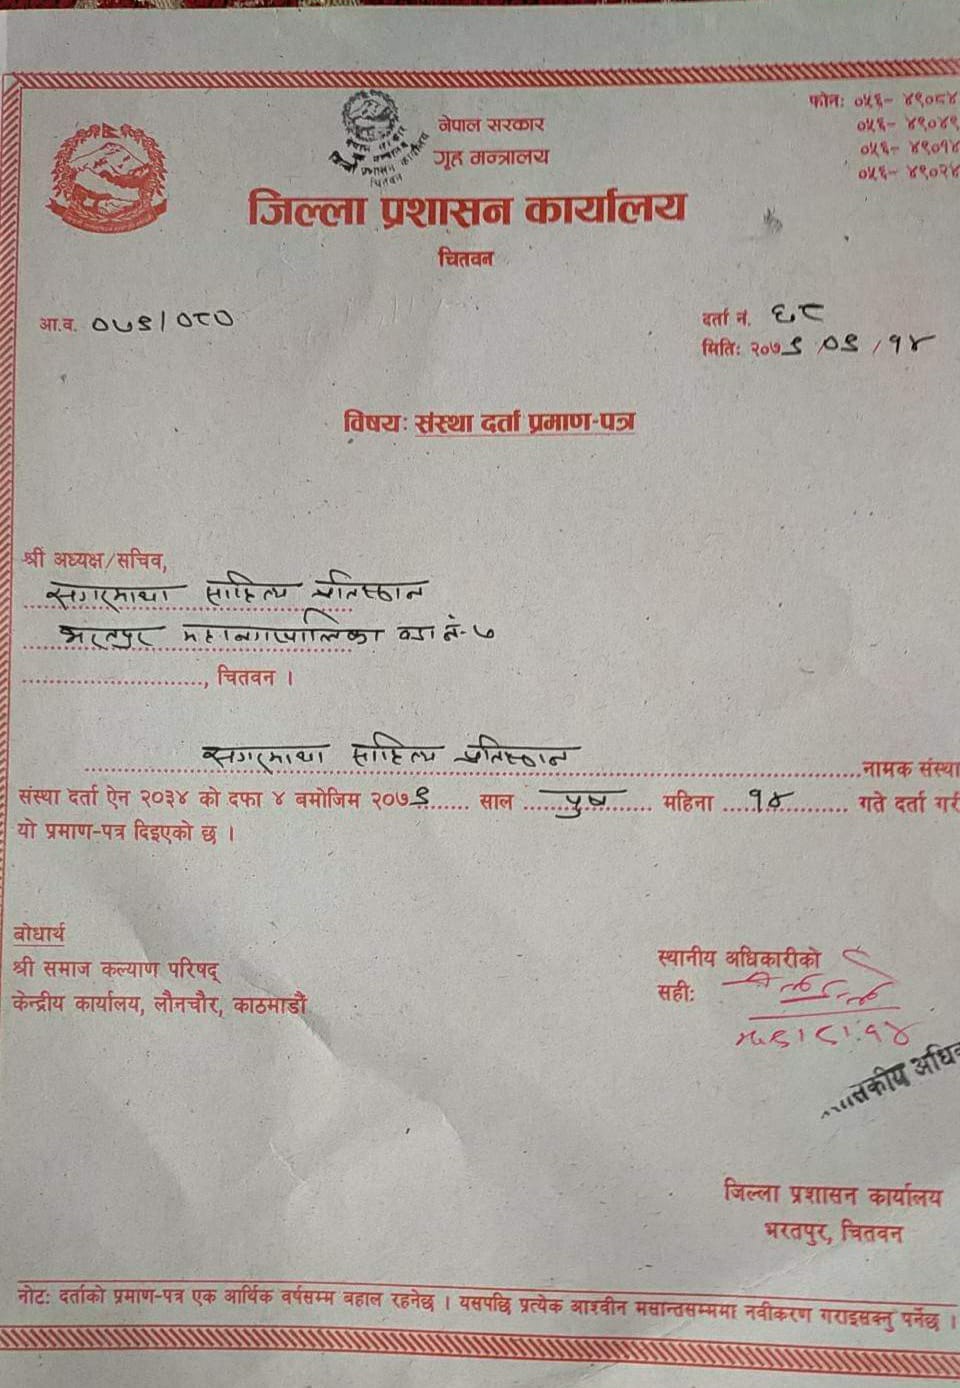 फोन: ०५६- ४९०८४
०५६- ४९०४९
०५६- ४९०१४
०५६- ४९०२४
नेपाल सरकार
गृह मन्त्रालय
जिल्ला प्रशासन कार्यालय
चितवन
आ.व. ०७९/०८०
दर्ता नं. ६८
मिति: २०७९/०९/१४
विषय: संस्था दर्ता प्रमाण-पत्र
श्री अध्यक्ष/सचिव,
सगरमाथा साहित्य प्रतिष्ठान
भरतपुर महानगरपालिका वडा नं-७
, चितवन ।
सगरमाथा साहित्य प्रतिष्ठान नामक संस्था
संस्था दर्ता ऐन २०३४ को दफा ४ बमोजिम २०७९ साल पुष महिना १४ गते दर्ता गरी
यो प्रमाण-पत्र दिइएको छ ।
बोधार्थ
श्री समाज कल्याण परिषद्
केन्द्रीय कार्यालय, लैनचौर, काठमाडौं
स्थानीय अधिकारीको
सही:
जिल्ला प्रशासन कार्यालय
भरतपुर, चितवन
नोट: दर्ताको प्रमाण-पत्र एक आर्थिक वर्षसम्म बहाल रहनेछ । यसपछि प्रत्येक आश्वीन मसान्तसम्ममा नवीकरण गराइसक्नु पर्नेछ ।